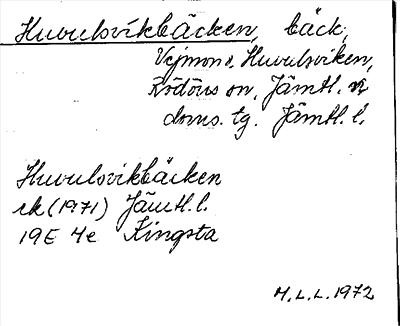 Huvulsvikbäcken, bäck,
Vejmon o. Huvulsviken,
Rödöns sn, Jämtl. v
doms. tg. Jämtl. l.
Huvulsvikbäcken
ek (1971) Jämtl. l.
19E 4e Kingsta
M. L. L. 1972